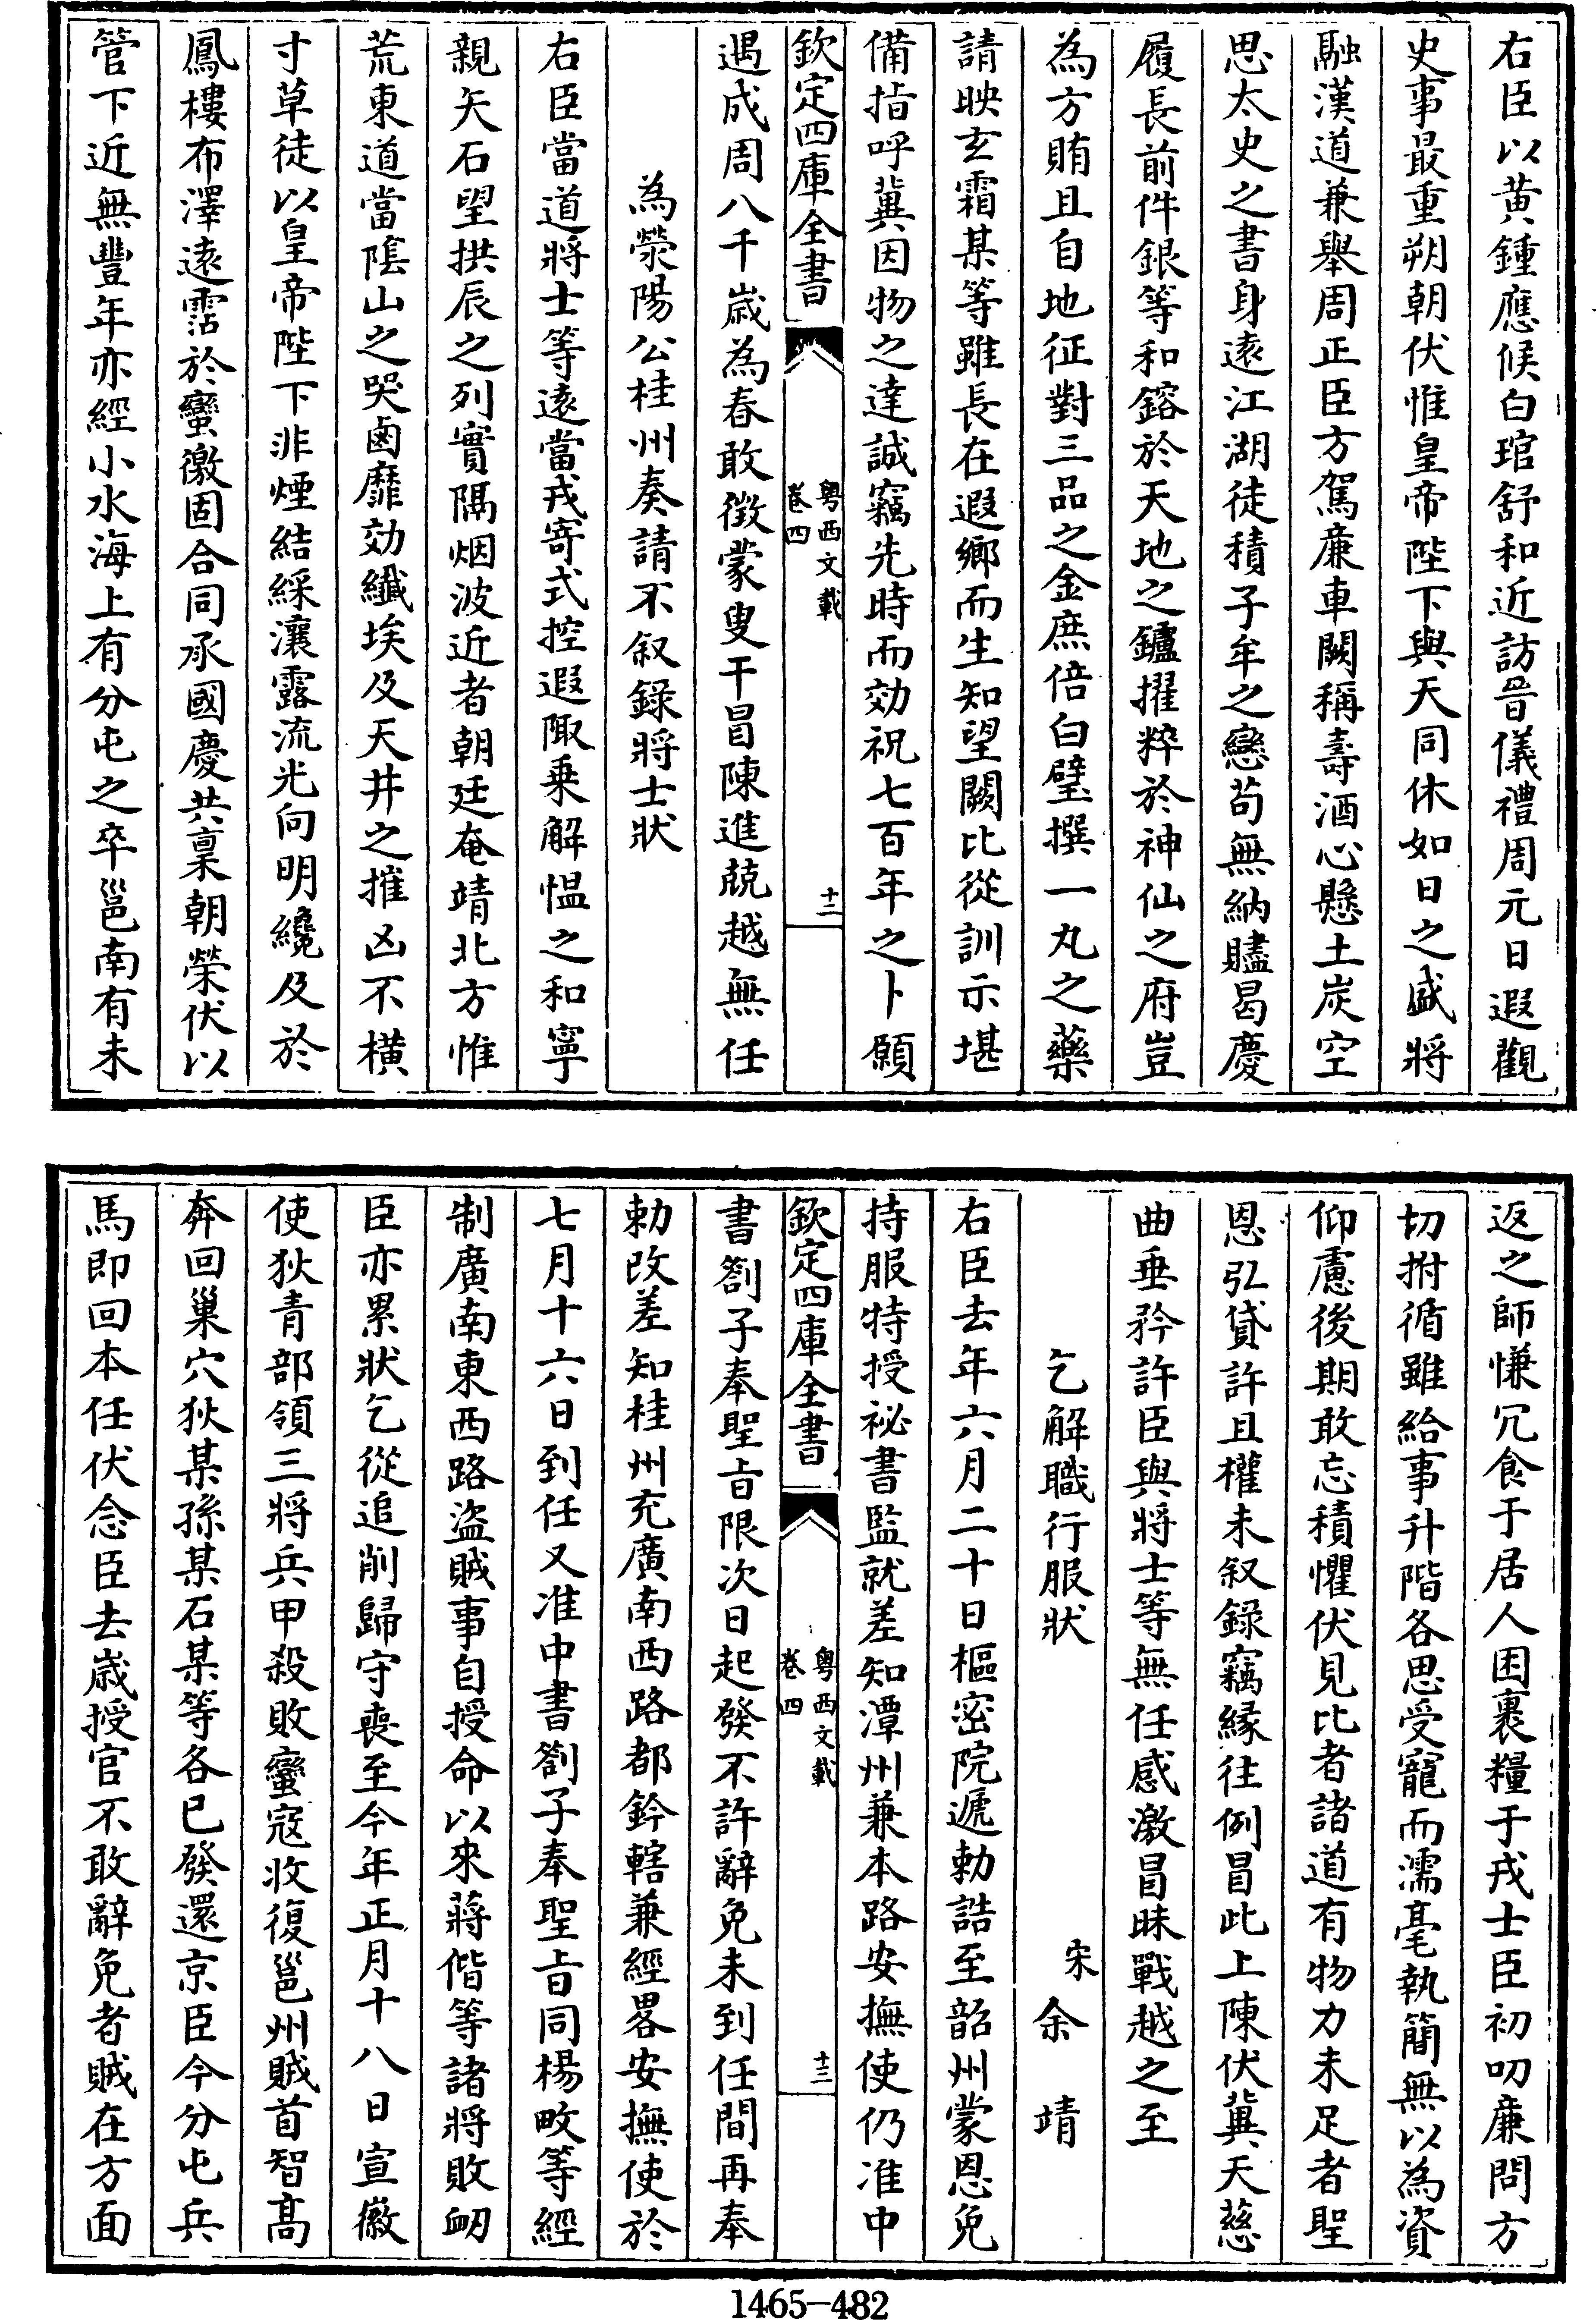 右臣以黃鍾應候白琯舒和近訪晉儀禮周元日遐觀
史事最重朔朝伏惟皇帝陛下與天同休如日之盛將
融漢道兼舉周正臣方駕廉車闕稱壽酒心懸土炭空
思太史之書身遠江湖徒積子牟之戀苟無納贐曷慶
履長前件銀等和鎔於天地之鑪擢粹於神仙之府豈
為方賄且自地征對三品之金庶倍白璧撰一丸之藥
請映玄霜某等雖長在遐鄉而生知望闕比從訓示堪
備指呼冀因物之達誠竊先時而効祝七百年之卜願
欽定四庫全書
粵西文載
卷四
十二
遇成周八千歲為春敢徵蒙叟干冒陳進兢越無任
為滎陽公桂州奏請不叙錄將士狀
右臣當道將士等遠當戎寄式控遐陬乗解愠之和寧
親矢石望拱辰之列實隔烟波近者朝廷奄靖北方惟
荒東道當陰山之哭鹵靡効纖埃及天井之摧凶不橫
寸草徒以皇帝陛下非煙結綵瀼露流光向明纔及於
鳳樓布澤遠霑於蠻徼固合同承國慶共稟朝榮伏以
管下近無豐年亦經小水海上有分屯之卒邕南有未
返之師慊冗食于居人困裹糧于戎士臣初叨廉問方
切拊循雖給事升階各思受寵而濡毫執簡無以為資
仰慮後期敢忘積懼伏見比者諸道有物力未足者聖
恩弘貸許且權未叙錄竊緣往例冒此上陳伏冀天慈
曲垂矜許臣與將士等無任感激冒昧戰越之至
乞解職行服狀
宋　余　靖
右臣去年六月二十日樞密院遞勅誥至韶州蒙恩免
持服特授祕書監就差知潭州兼本路安撫使仍准中
欽定四庫全書
粵西文載
卷四
十三
書劄子奉聖旨限次日起發不許辭免未到任間再奉
勅改差知桂州充廣南西路都鈐轄兼經畧安撫使於
七月十六日到任又准中書劄子奉聖旨同楊畋等經
制廣南東西路盜賊事自授命以來蔣偕等諸將敗衂
臣亦累狀乞從追削歸守喪至今年正月十八日宣徽
使狄青部領三將兵甲殺敗蠻寇收復邕州賊首智高
奔回巢穴狄某孫某石某等各已發還京臣今分屯兵
馬即回本任伏念臣去歲授官不敢辭免者賊在方面
1465-482